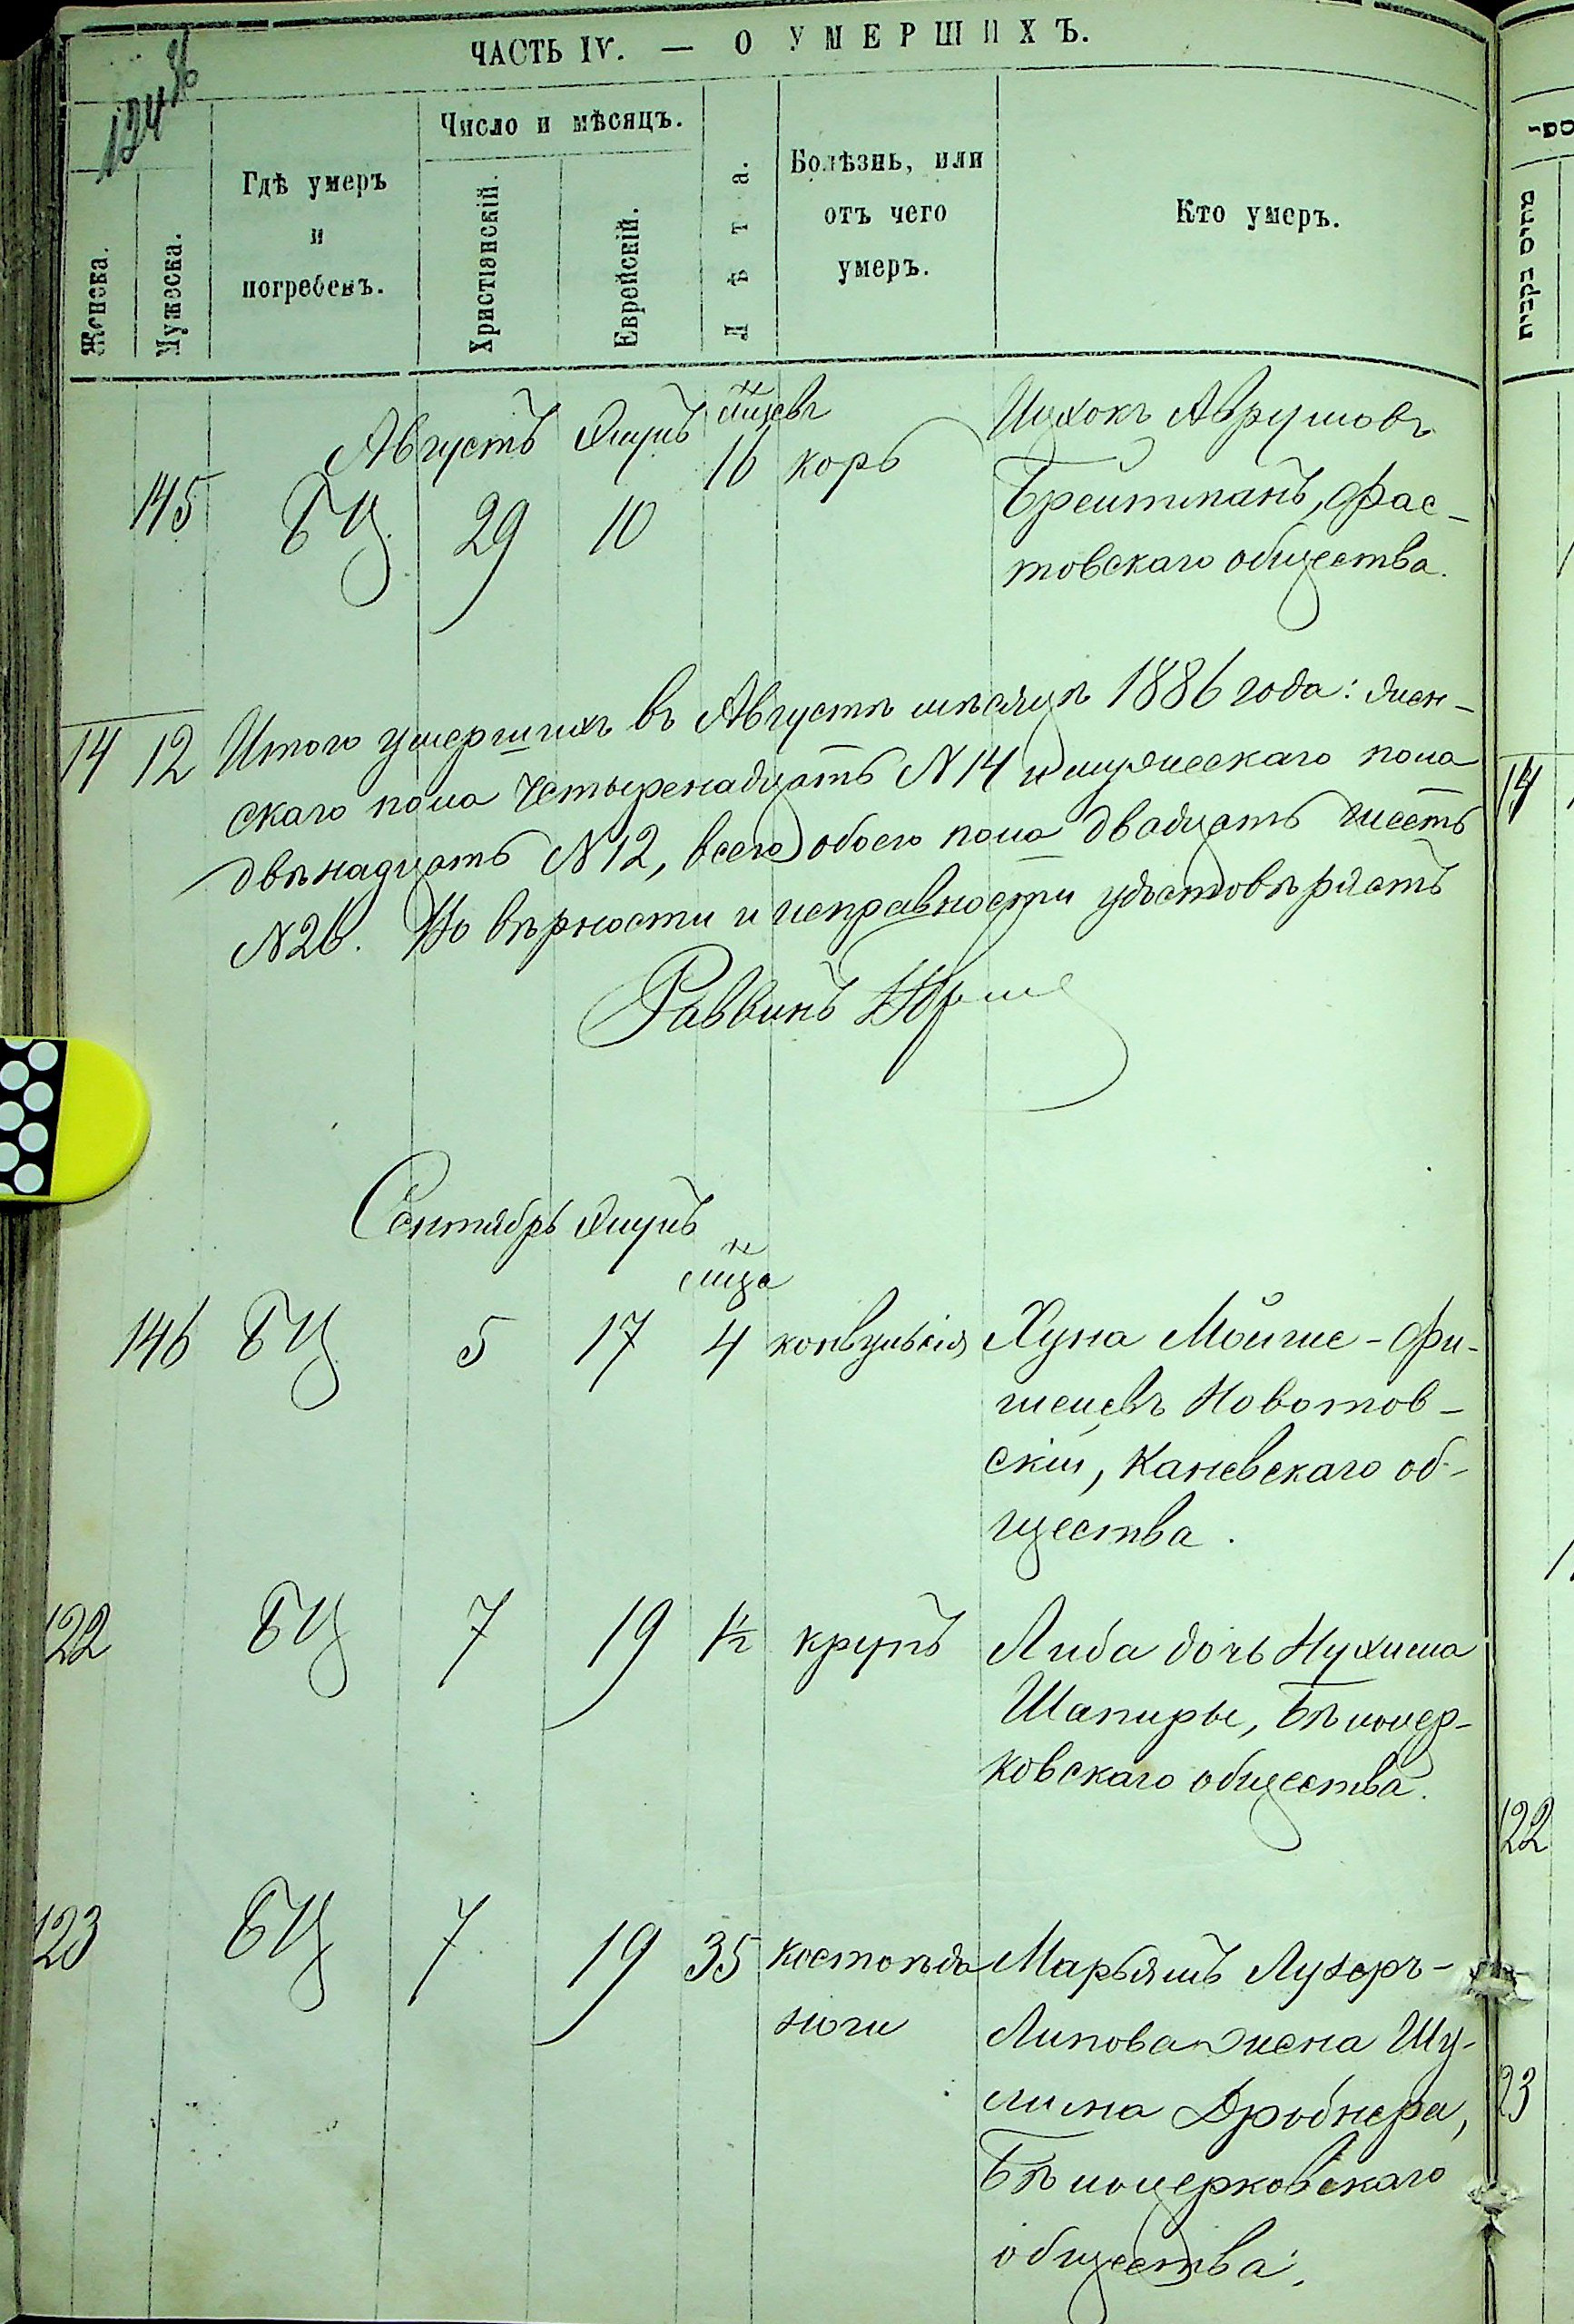 ЧАСТЬ IV. — О УМЕРШИХЪ.
124
Женска.
Мужеска.
Гдѣ умеръ
и
погребенъ.
Число и мѣсяцъ.
Христіянскій.
Еврейскій.
Лѣта.
Болѣзнь, или
отъ чего
умеръ.
Кто умеръ.
Августъ Элулъ мцевъ
145 БЦ. 29 10 16 корь Ицхокъ Аврумовъ
Брейтманъ, Фас-
товскаго общества.
14 12 Итого умершихъ въ Августѣ мѣсяцѣ 1886 года: жен-
скаго пола четыренадцать N14 и мужескаго пола
двѣнадцать N12, всего обоего пола двадцать шесть
N26. Въ вѣрности и исправности удостовѣряетъ
Раввинъ
Сентябрь Элулъ
мца
146 БЦ. 5 17 4 конвульсія Хуна Мойше-Фи-
шелевъ Новотов-
скій, Каневскаго об-
щества.
122 БЦ 7 19 1½ крупъ Либа дочь Нухима
Шапиры, Бѣлоцер-
ковскаго общества.
123 БЦ 7 19 35 костоѣда Марьямъ Лузеръ-
ноги Липова жена Шу-
лима Дробнера,
Бѣлоцерковскаго
общества.
14
122
23